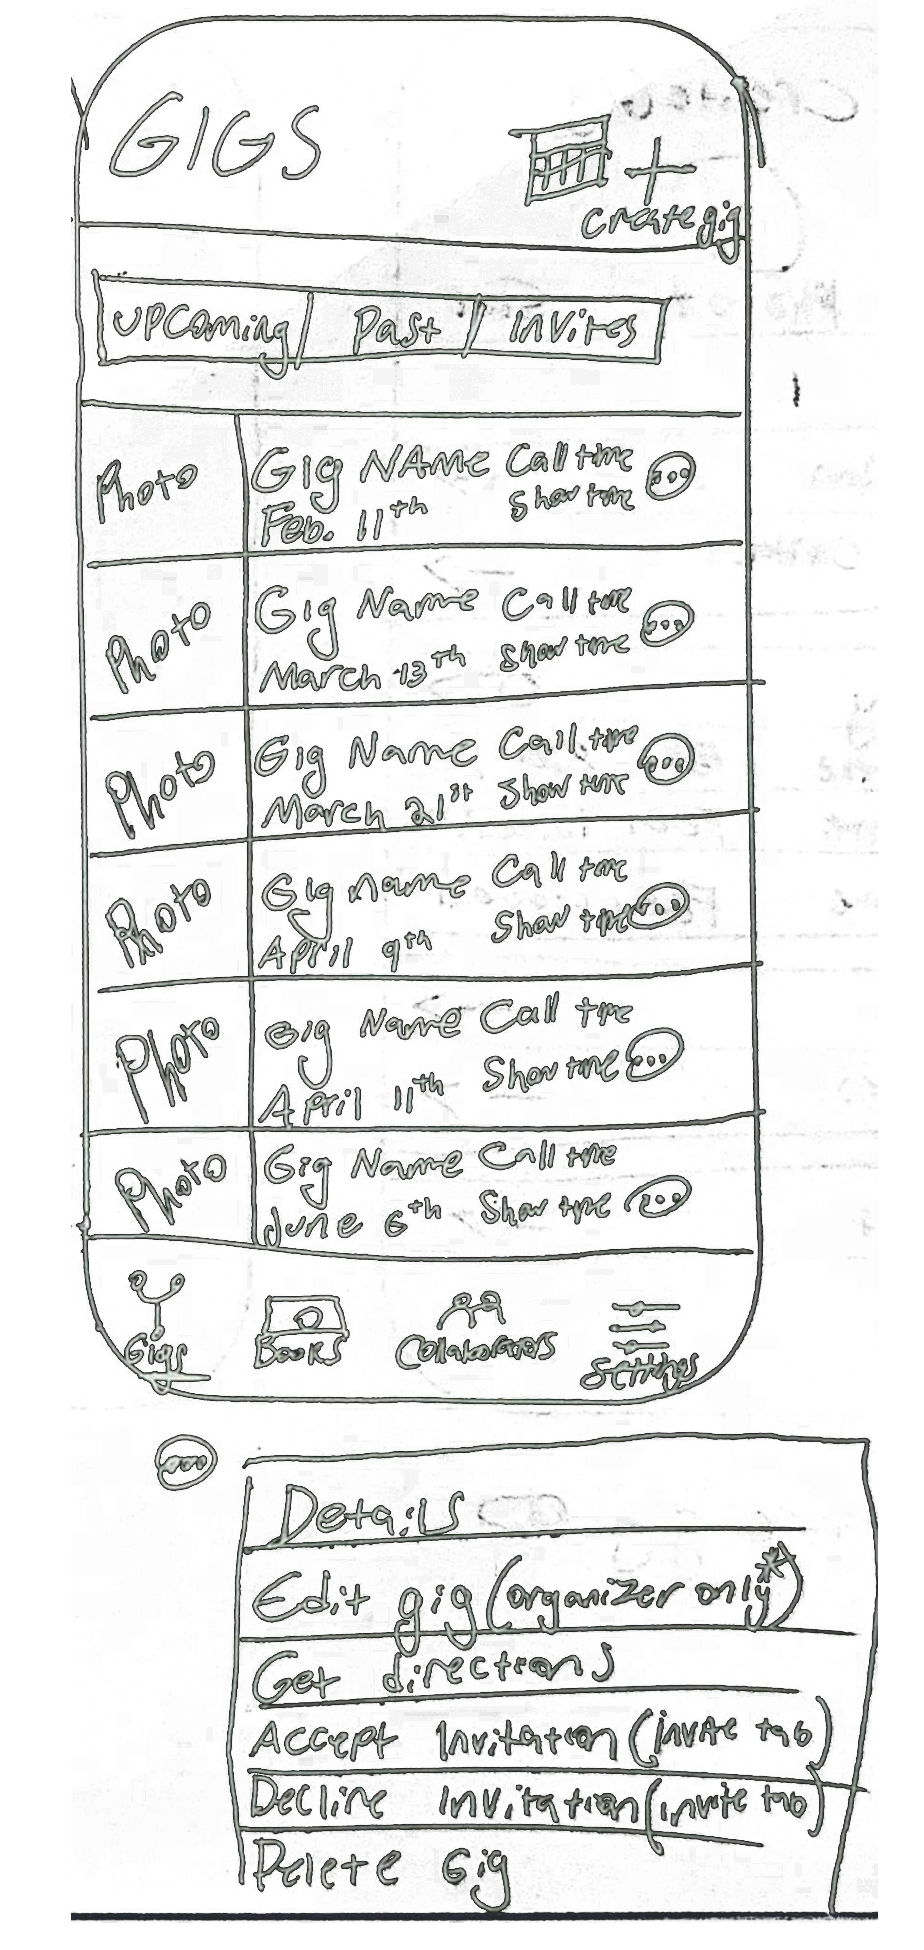 GIGS
Create gig
Upcoming Past Invites
Photo Gig NAME Call time
Feb. 11th Show time
Photo Gig Name Call time
March 13th Show time
Photo Gig Name Call time
March 21st Show time
Photo Gig name Call time
April 9th Show time
Photo Gig Name Call time
April 11th Show time
Photo Gig Name Call time
June 6th Show time
Gigs Books Collaborators Settings
Details
Edit gig (organizer only*)
Get directions
Accept Invitation (invite tab)
Decline Invitation (invite tab)
Delete Gig